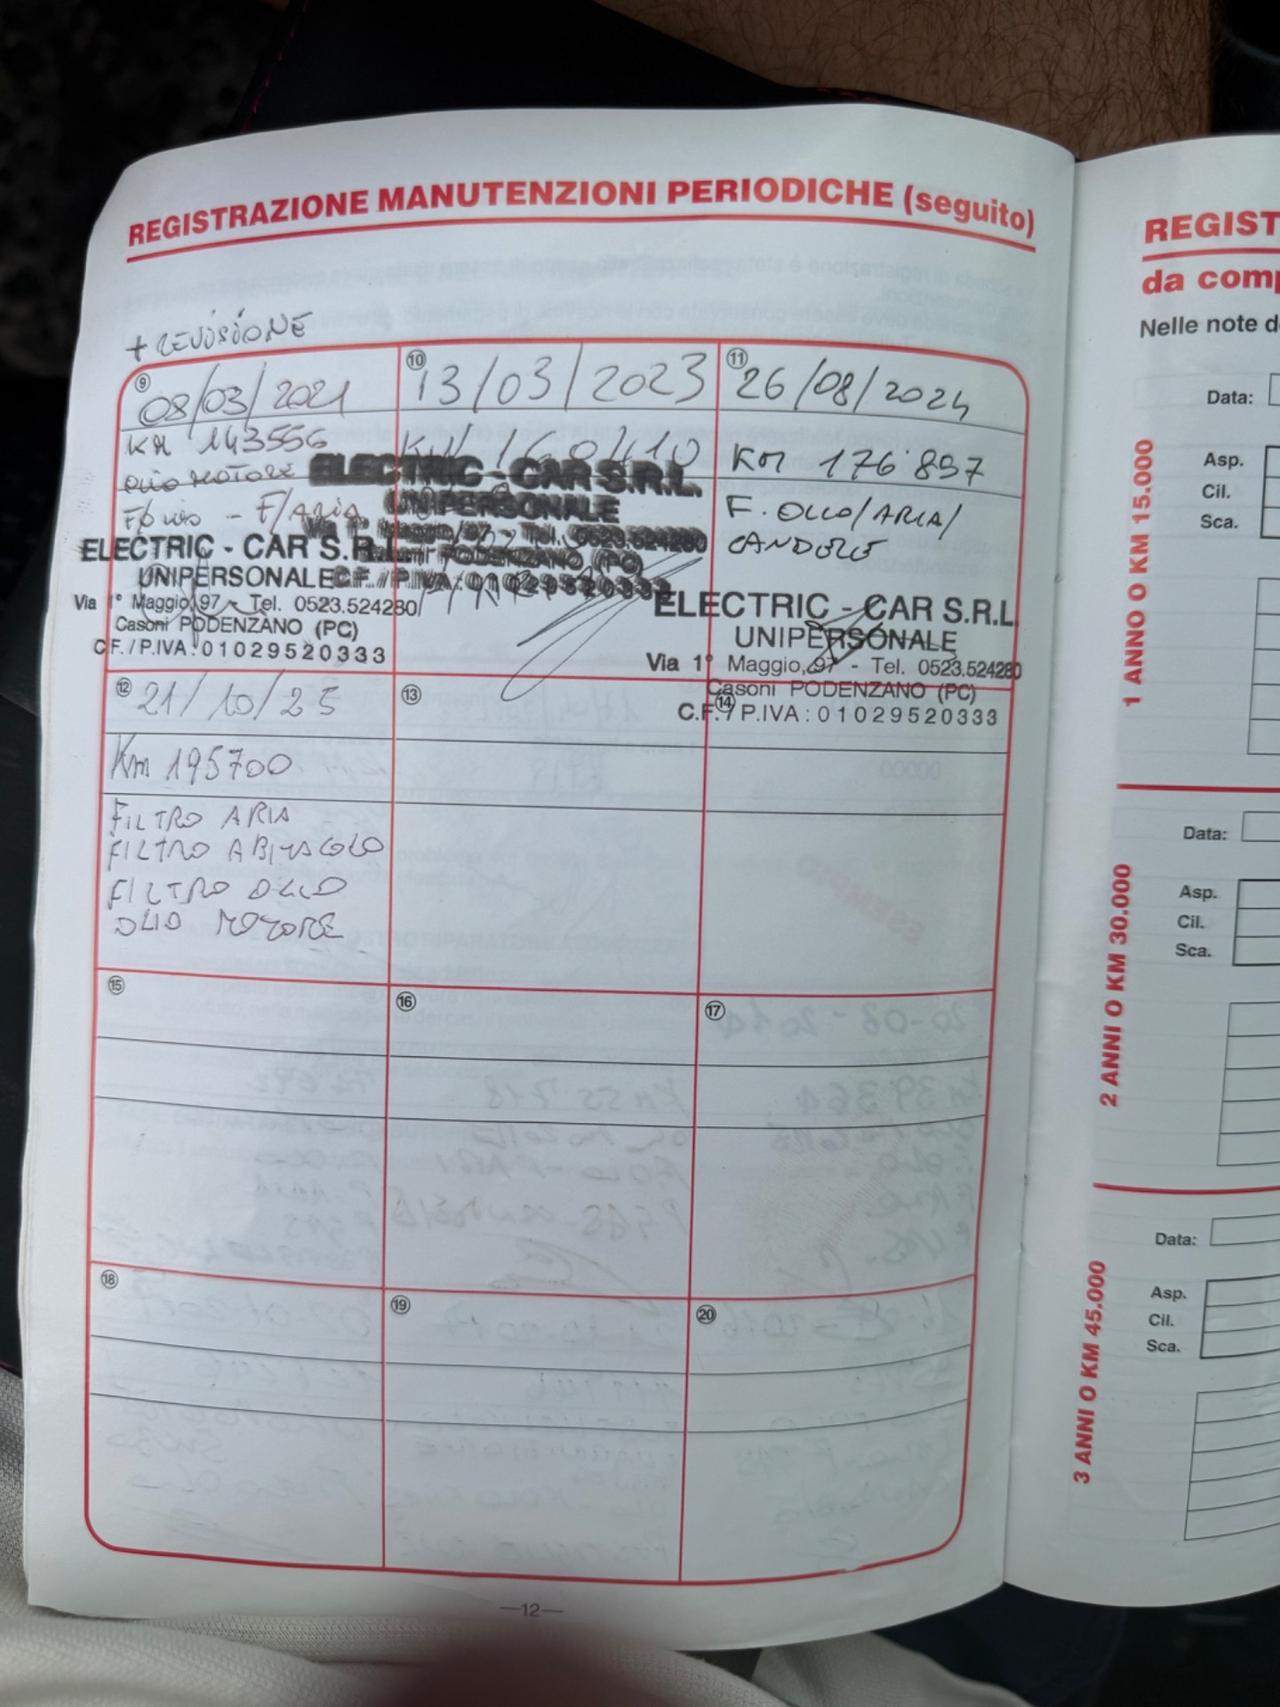 REGISTRAZIONE MANUTENZIONI PERIODICHE (seguito)
+ REVISIONE
9
08/03/2021
KM 143556
OLIO MOTORE
F/OLIO - F/ARIA
ELECTRIC - CAR S.R.L.
UNIPERSONALE
Via 1° Maggio, 97 - Tel. 0523.524280
Casoni PODENZANO (PC)
C.F./P.IVA: 01029520333
10
13/03/2023
KM 160410
ELECTRIC - CAR S.R.L.
UNIPERSONALE
Via 1° Maggio, 97 - Tel. 0523.524280
Casoni PODENZANO (PC)
C.F./P.IVA: 01029520333
11
26/08/2024
KM 176897
F. OLIO/ARIA/
CANDELE
ELECTRIC - CAR S.R.L.
UNIPERSONALE
Via 1° Maggio, 97 - Tel. 0523.524280
Casoni PODENZANO (PC)
C.F./P.IVA: 01029520333
12
21/10/25
Km 195700
FILTRO ARIA
FILTRO ABITACOLO
FILTRO OLIO
OLIO MOTORE
13
14
15
16
17
18
19
20
—12—
REGIST
da comp
Nelle note d
1 ANNO O KM 15.000
Data:
Asp.
Cil.
Sca.
2 ANNI O KM 30.000
Data:
Asp.
Cil.
Sca.
3 ANNI O KM 45.000
Data:
Asp.
Cil.
Sca.